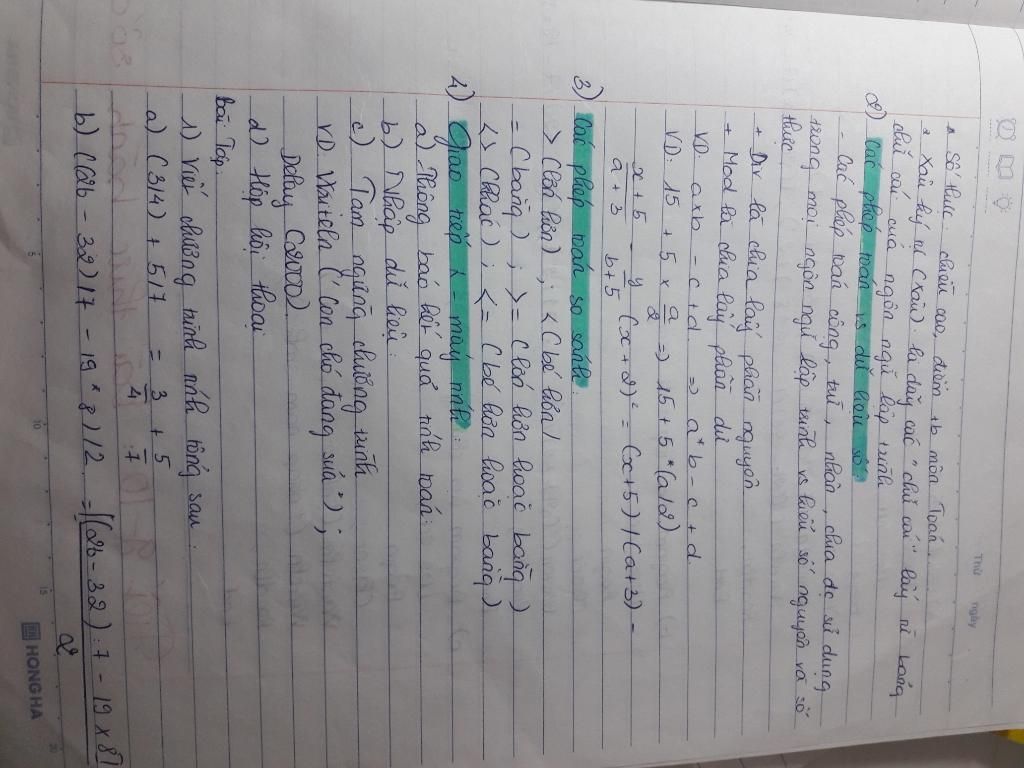 Thứ ngày
* Số thực: chiều cao, điểm tb môn Toán.
* Xâu ký tự (xâu): là dãy các "chữ cái" lấy từ bảng
chữ cái của ngôn ngữ lập trình
2) Các phép toán vs dữ liệu số:
- Các phép toán cộng, trừ, nhân, chia đc sử dụng
trong mọi ngôn ngữ lập trình vs kiểu số nguyên và số
thực
+ Div là chia lấy phần nguyên
+ Mod là chia lấy phần dư
VD: axb - c + d. => a*b - c + d.
VD: 15 + 5 x a/2 => 15 + 5*(a/2)
x + 5 / a + 3 - y / b + 5 (x + 2)² = (x+5) / (a+3) -
3) Các phép toán so sánh:
> (lớn hơn) ; < (bé hơn)
= (bằng) ; >= (lớn hơn hoặc bằng)
<> (khác) ; <= (bé hơn hoặc bằng)
4) Giao tiếp - máy tính:
a) Thông báo kết quả tính toán:
b) Nhập dữ liệu:
c) Tạm ngừng chương trình
VD: Writeln (' Con chó đang sủa') ;
Delay (2000).
d) Hộp hội thoại
Bài Tập.
1) Viết chương trình tính tổng sau:
a) (3/4) + 5/7 = 3/4 + 5/7
b) - 32) / 7 - 19 * 8) / 2 = - 32) : 7 - 19 x 8] / 2
HONG HA